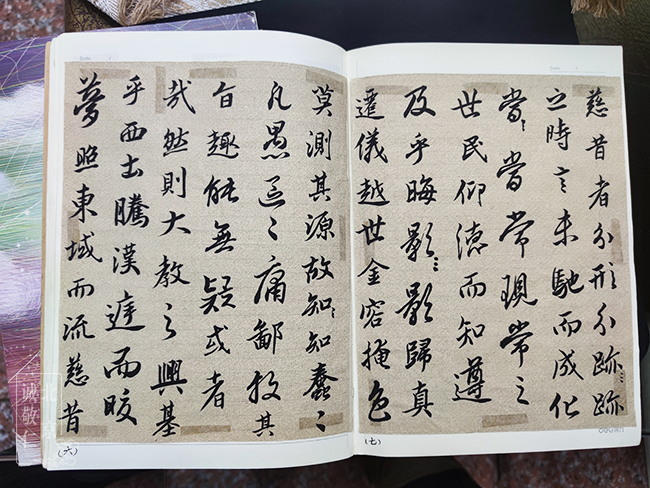 Date
莫測其源故知知蠢々
凡愚區々庸鄙投其
旨趣能無疑或者
哉然則大教之興基
乎西土騰漢庭而皎
夢照東域而流慈昔
(六)
Date
慈昔者分形分跡跡
之時言未馳而成化
當當常現常之
世民仰德而知遵
及乎晦影影歸真
遷儀越世金容掩色
(七)
誠敬仁